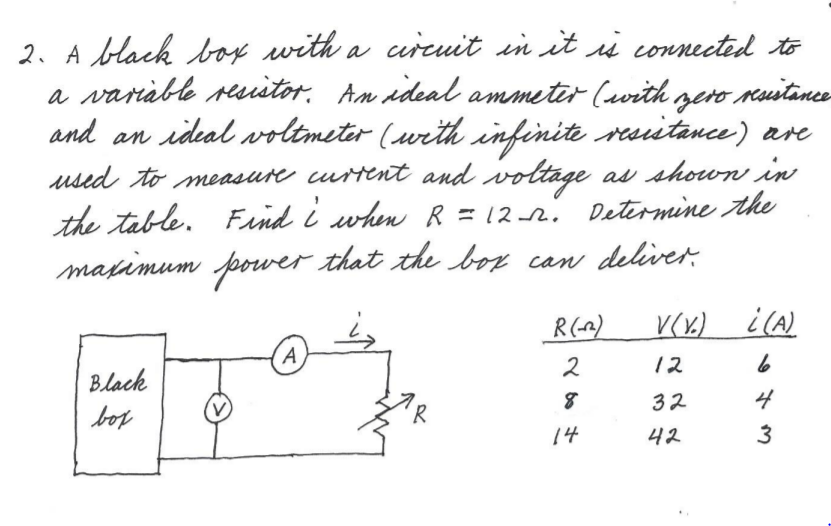 2. A black box with a circuit in it is connected to
a variable resistor. An ideal ammeter (with zero resistance
and an ideal voltmeter (with infinite resistance) are
used to measure current and voltage as shown in
the table. Find i when R = 12 Ω. Determine the
maximum power that the box can deliver.
i
A
Black
box
V
R
R(Ω) V(V.) i(A)
2 12 6
8 32 4
14 42 3